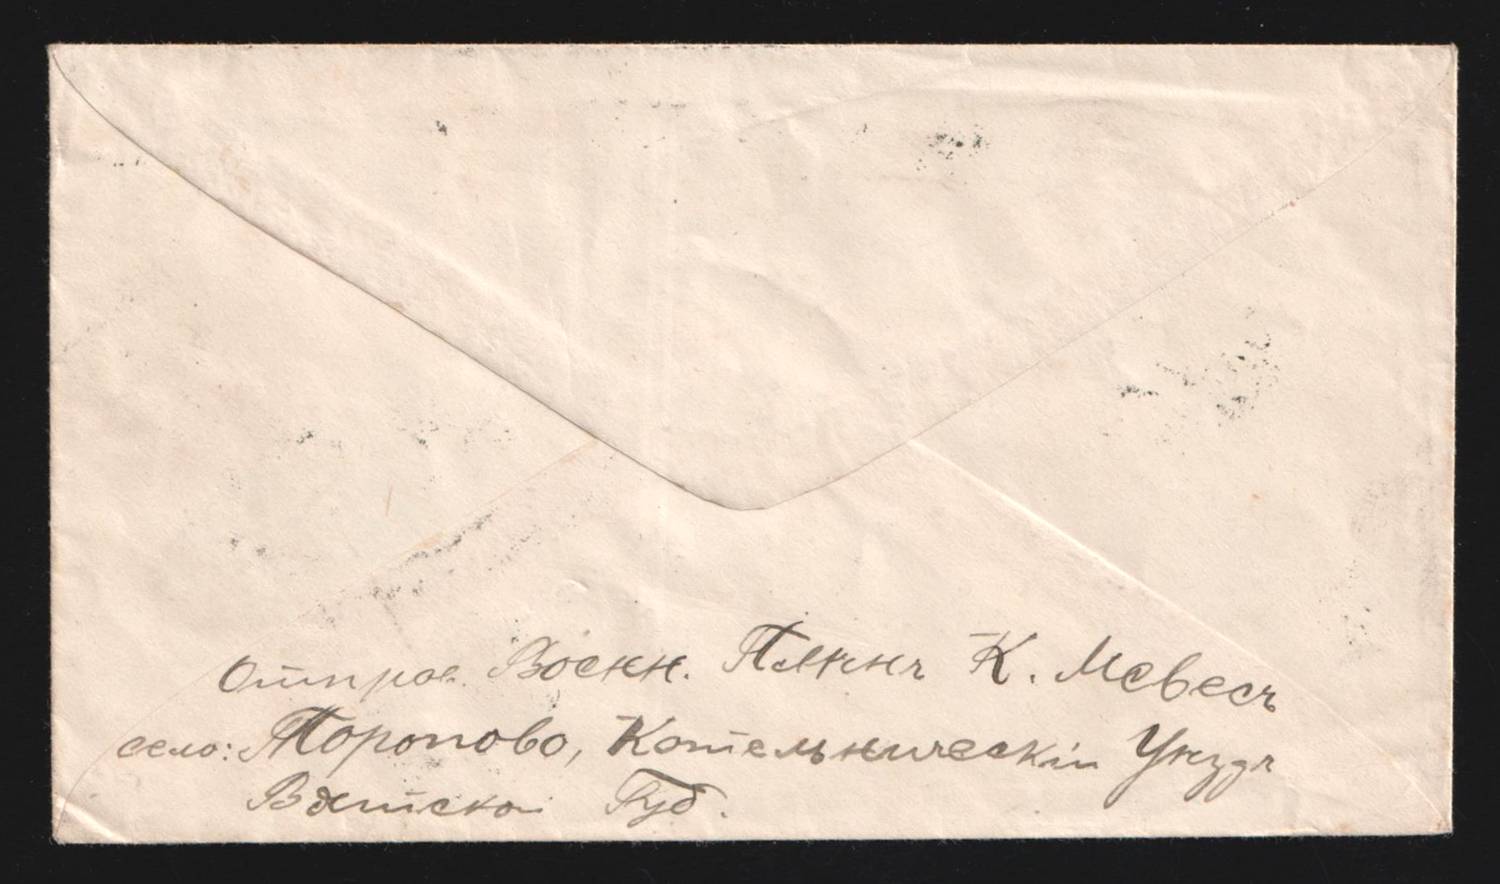 Отправ. Военн. Плѣнн К. Мевесъ
село: Торопово, Котельническій Уѣздъ
Вятской Губ.